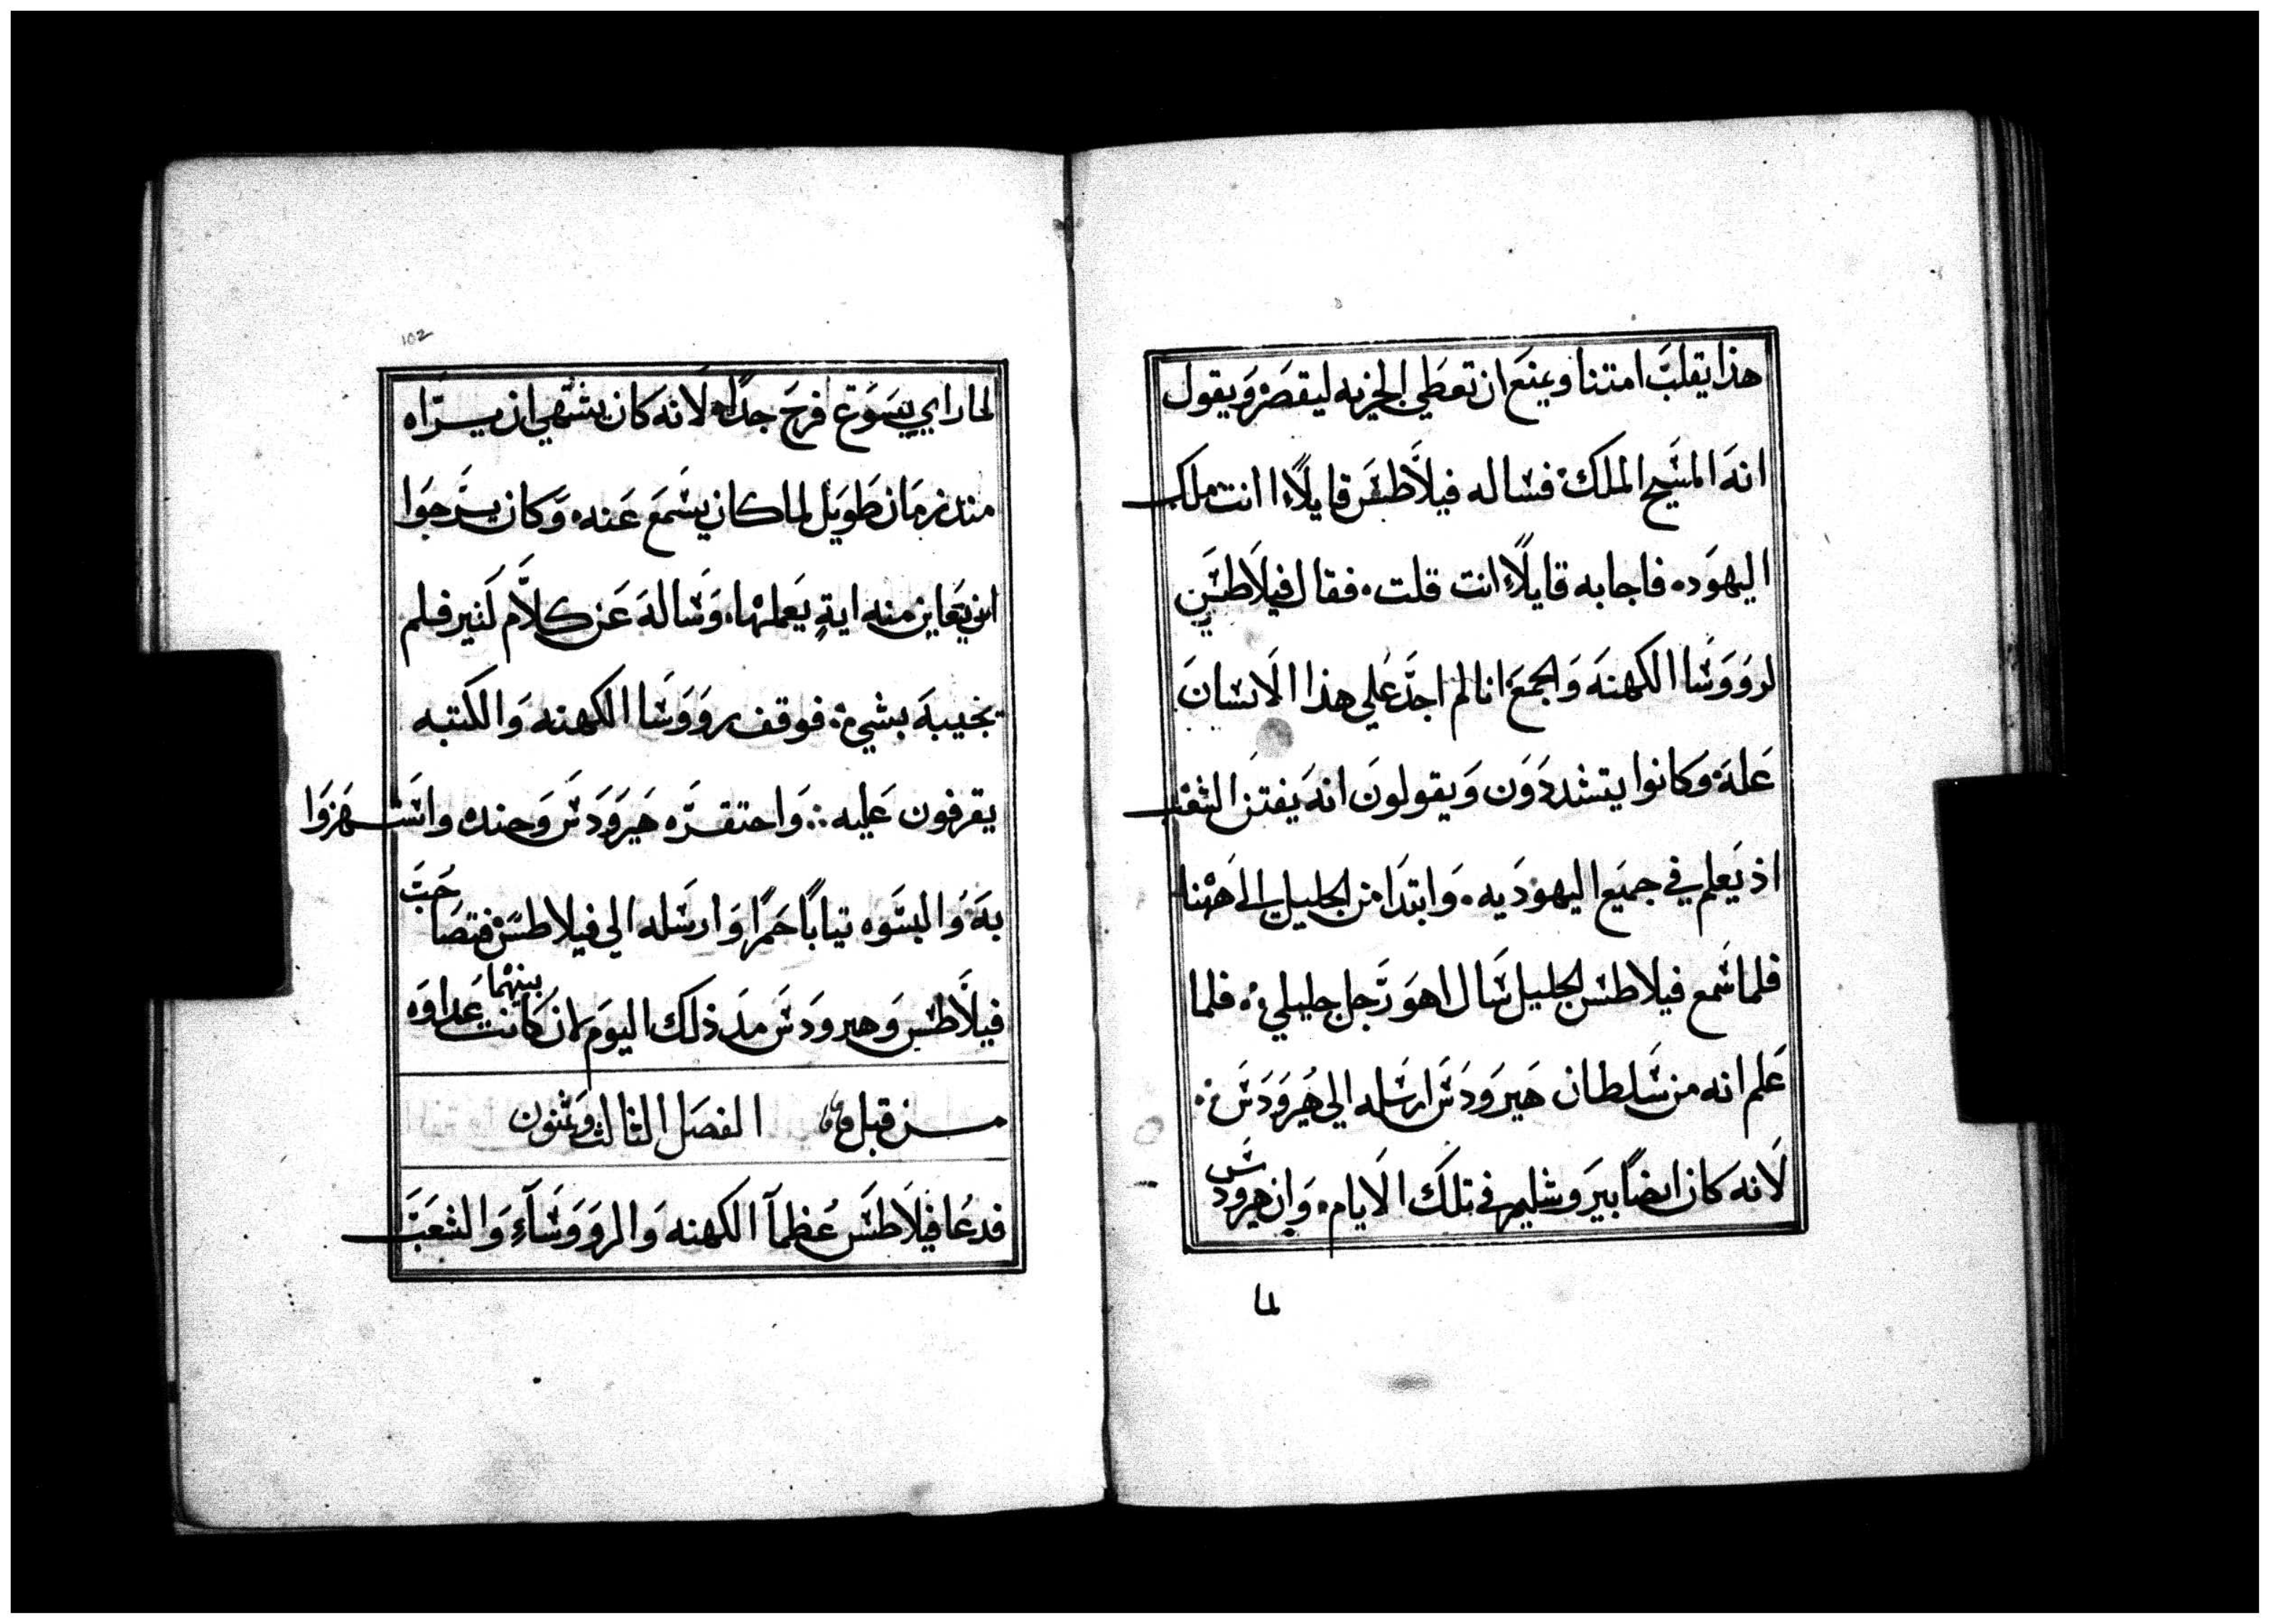 هذا يقلب امتنا ويمنع ان تعطي الجزيه ليقصر ويقول
انه المسيح الملك فساله فيلاطس قايلاً اانت ملك
اليهود فاجابه قايلاً انت قلت فقال فيلاطس
لرووسا الكهنه والجمع انا لم اجد علي هذا الانسان
عله وكانوا يتشددون ويقولون انه يفتن الشعب
اذ يعلم في جميع اليهوديه وابتدا من الجليل الي هنا
فلما سمع فيلاطس الجليل سال اهو رجل جليلي فلما
علم انه من سلطان هيرودس ارسله الي هيرودس
لانه كان ايضاً بيروشليم في تلك الايام وان هيرودس
لما
102
لما راي يسوع فرح جداً لانه كان يشتهي ان يراه
منذ زمان طويل لما كان يسمع عنه وكان يرجوا
ان يعاين منه ايةٍ يعملها وساله عن كلام كثير فلم
يجيبه بشي فوقف رووسا الكهنه والكتبه
يقرفون عليه واحتقره هيرودس وجنده واستهزوا
به والبسوه تياباً حمراً وارسله الي فيلاطس فتصاحب
فيلاطس وهيرودس مد ذلك اليوم لان كانت بينهما عداوه
من قبل الفصل الثالث وثمنون
فدعا فيلاطس عظمآ الكهنه والرووسآء والشعب